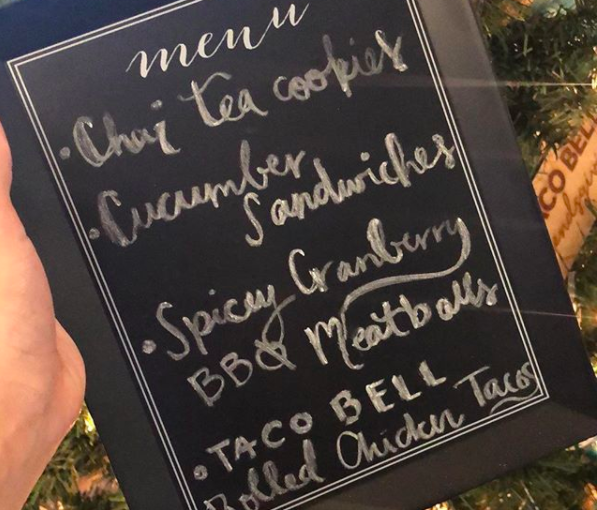 menu
• Chai tea cookies
• Cucumber
Sandwiches
• Spicey Cranberry
BBQ Meatballs
• TACO BELL
Rolled Chicken Tacos
CO BELL